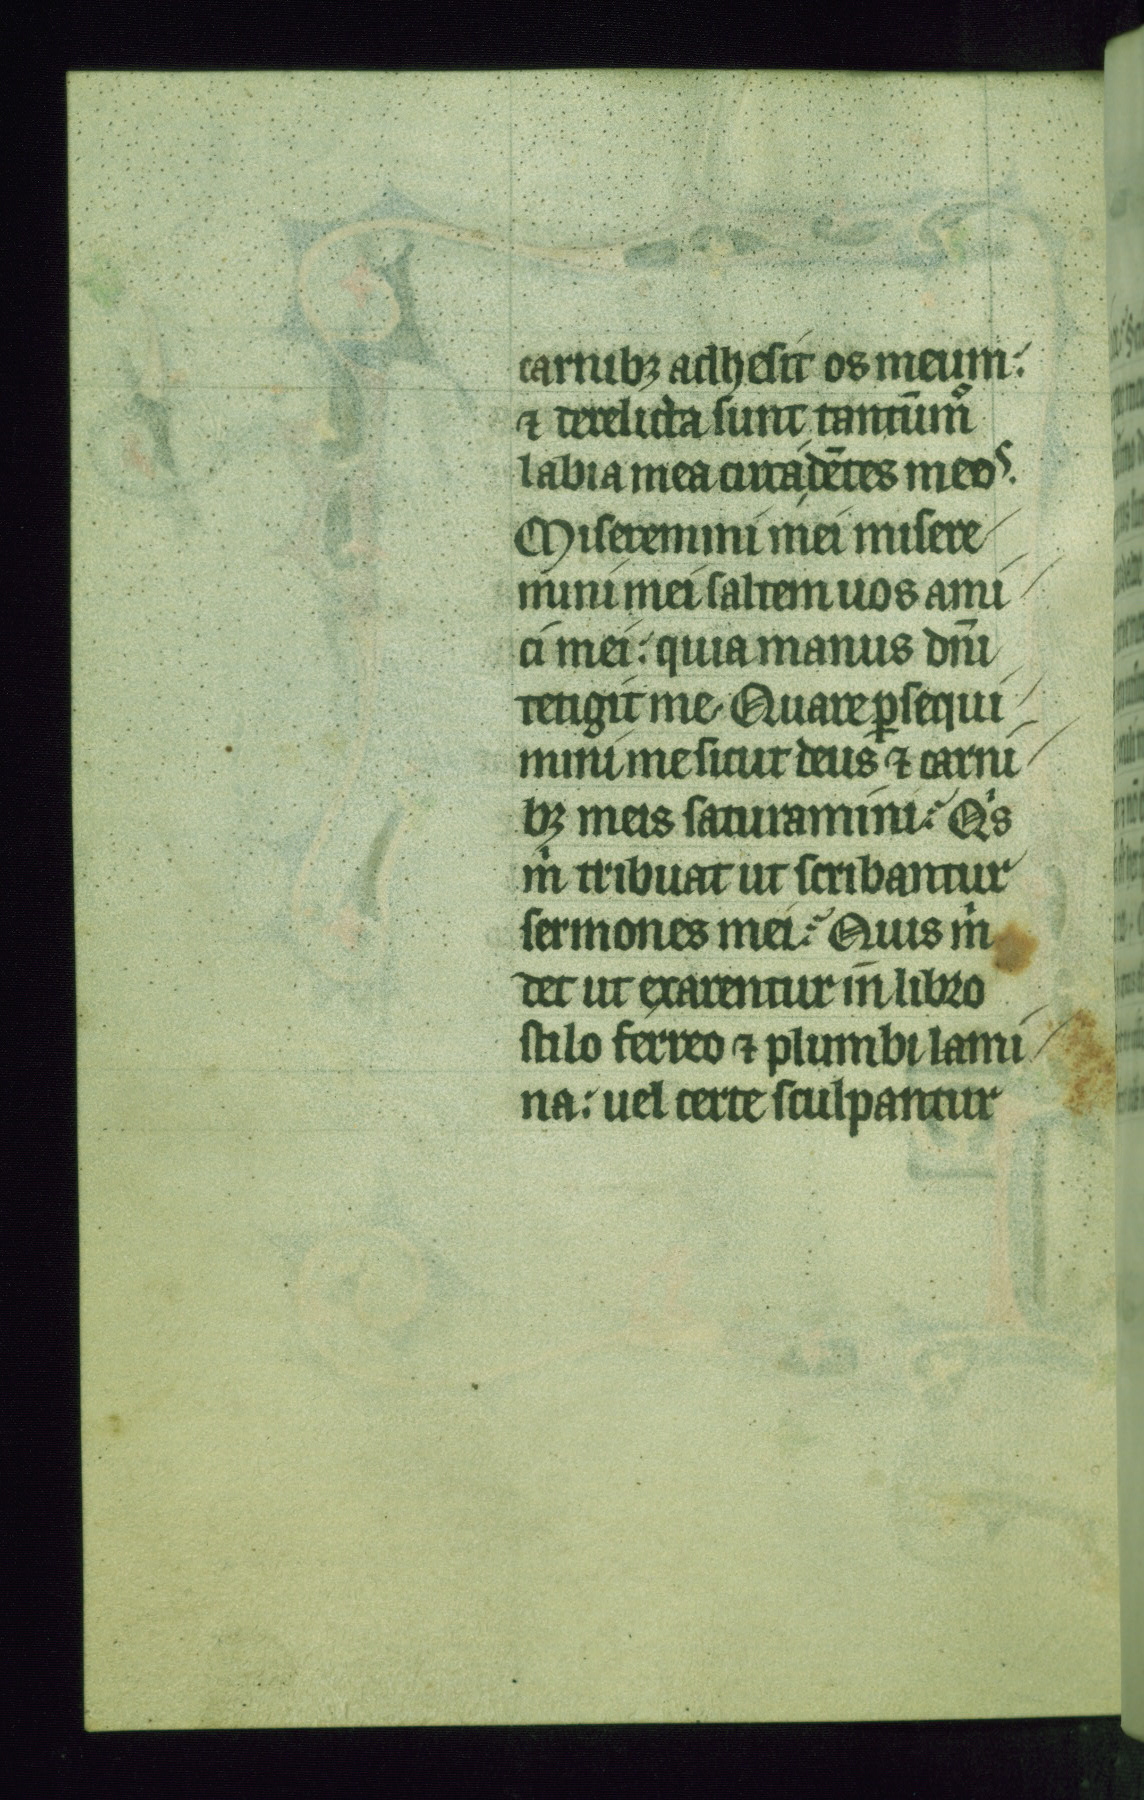 carnibꝫ adhesit os meum:
⁊ derelicta sunt tantūmͦ
labia mea circa dētes meoˢ.
Miseremini mei misere
mini mei saltem uos ami
ci mei: quia manus dn̄i
tetigit me. Quare ꝑsequi
mini me sicut deus ⁊ carni
bꝫ meis saturamini: Qͥs
mͥ tribuat ut scribantur
sermones mei: Quis mͥ
det ut exarentur in libro
stilo ferreo ⁊ plumbi lami
na: uel certe sculpantur